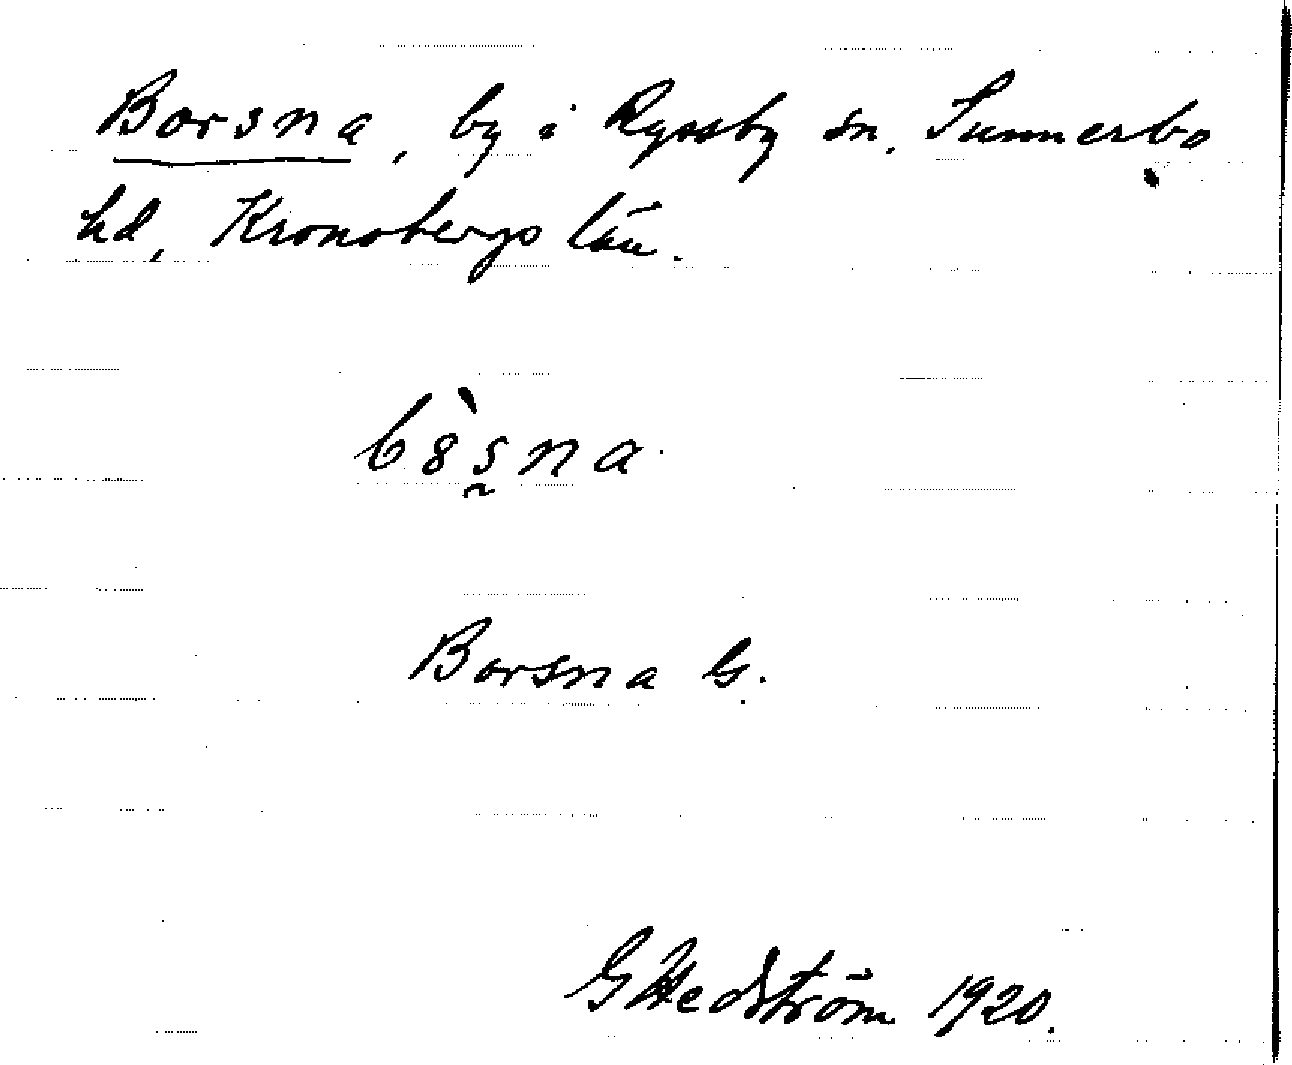 Borsna, by i Ryssby sn, Sunnerbo
hd, Kronobergs län.
b8̀s̰na
Borsna G.
G Hedström 1920.